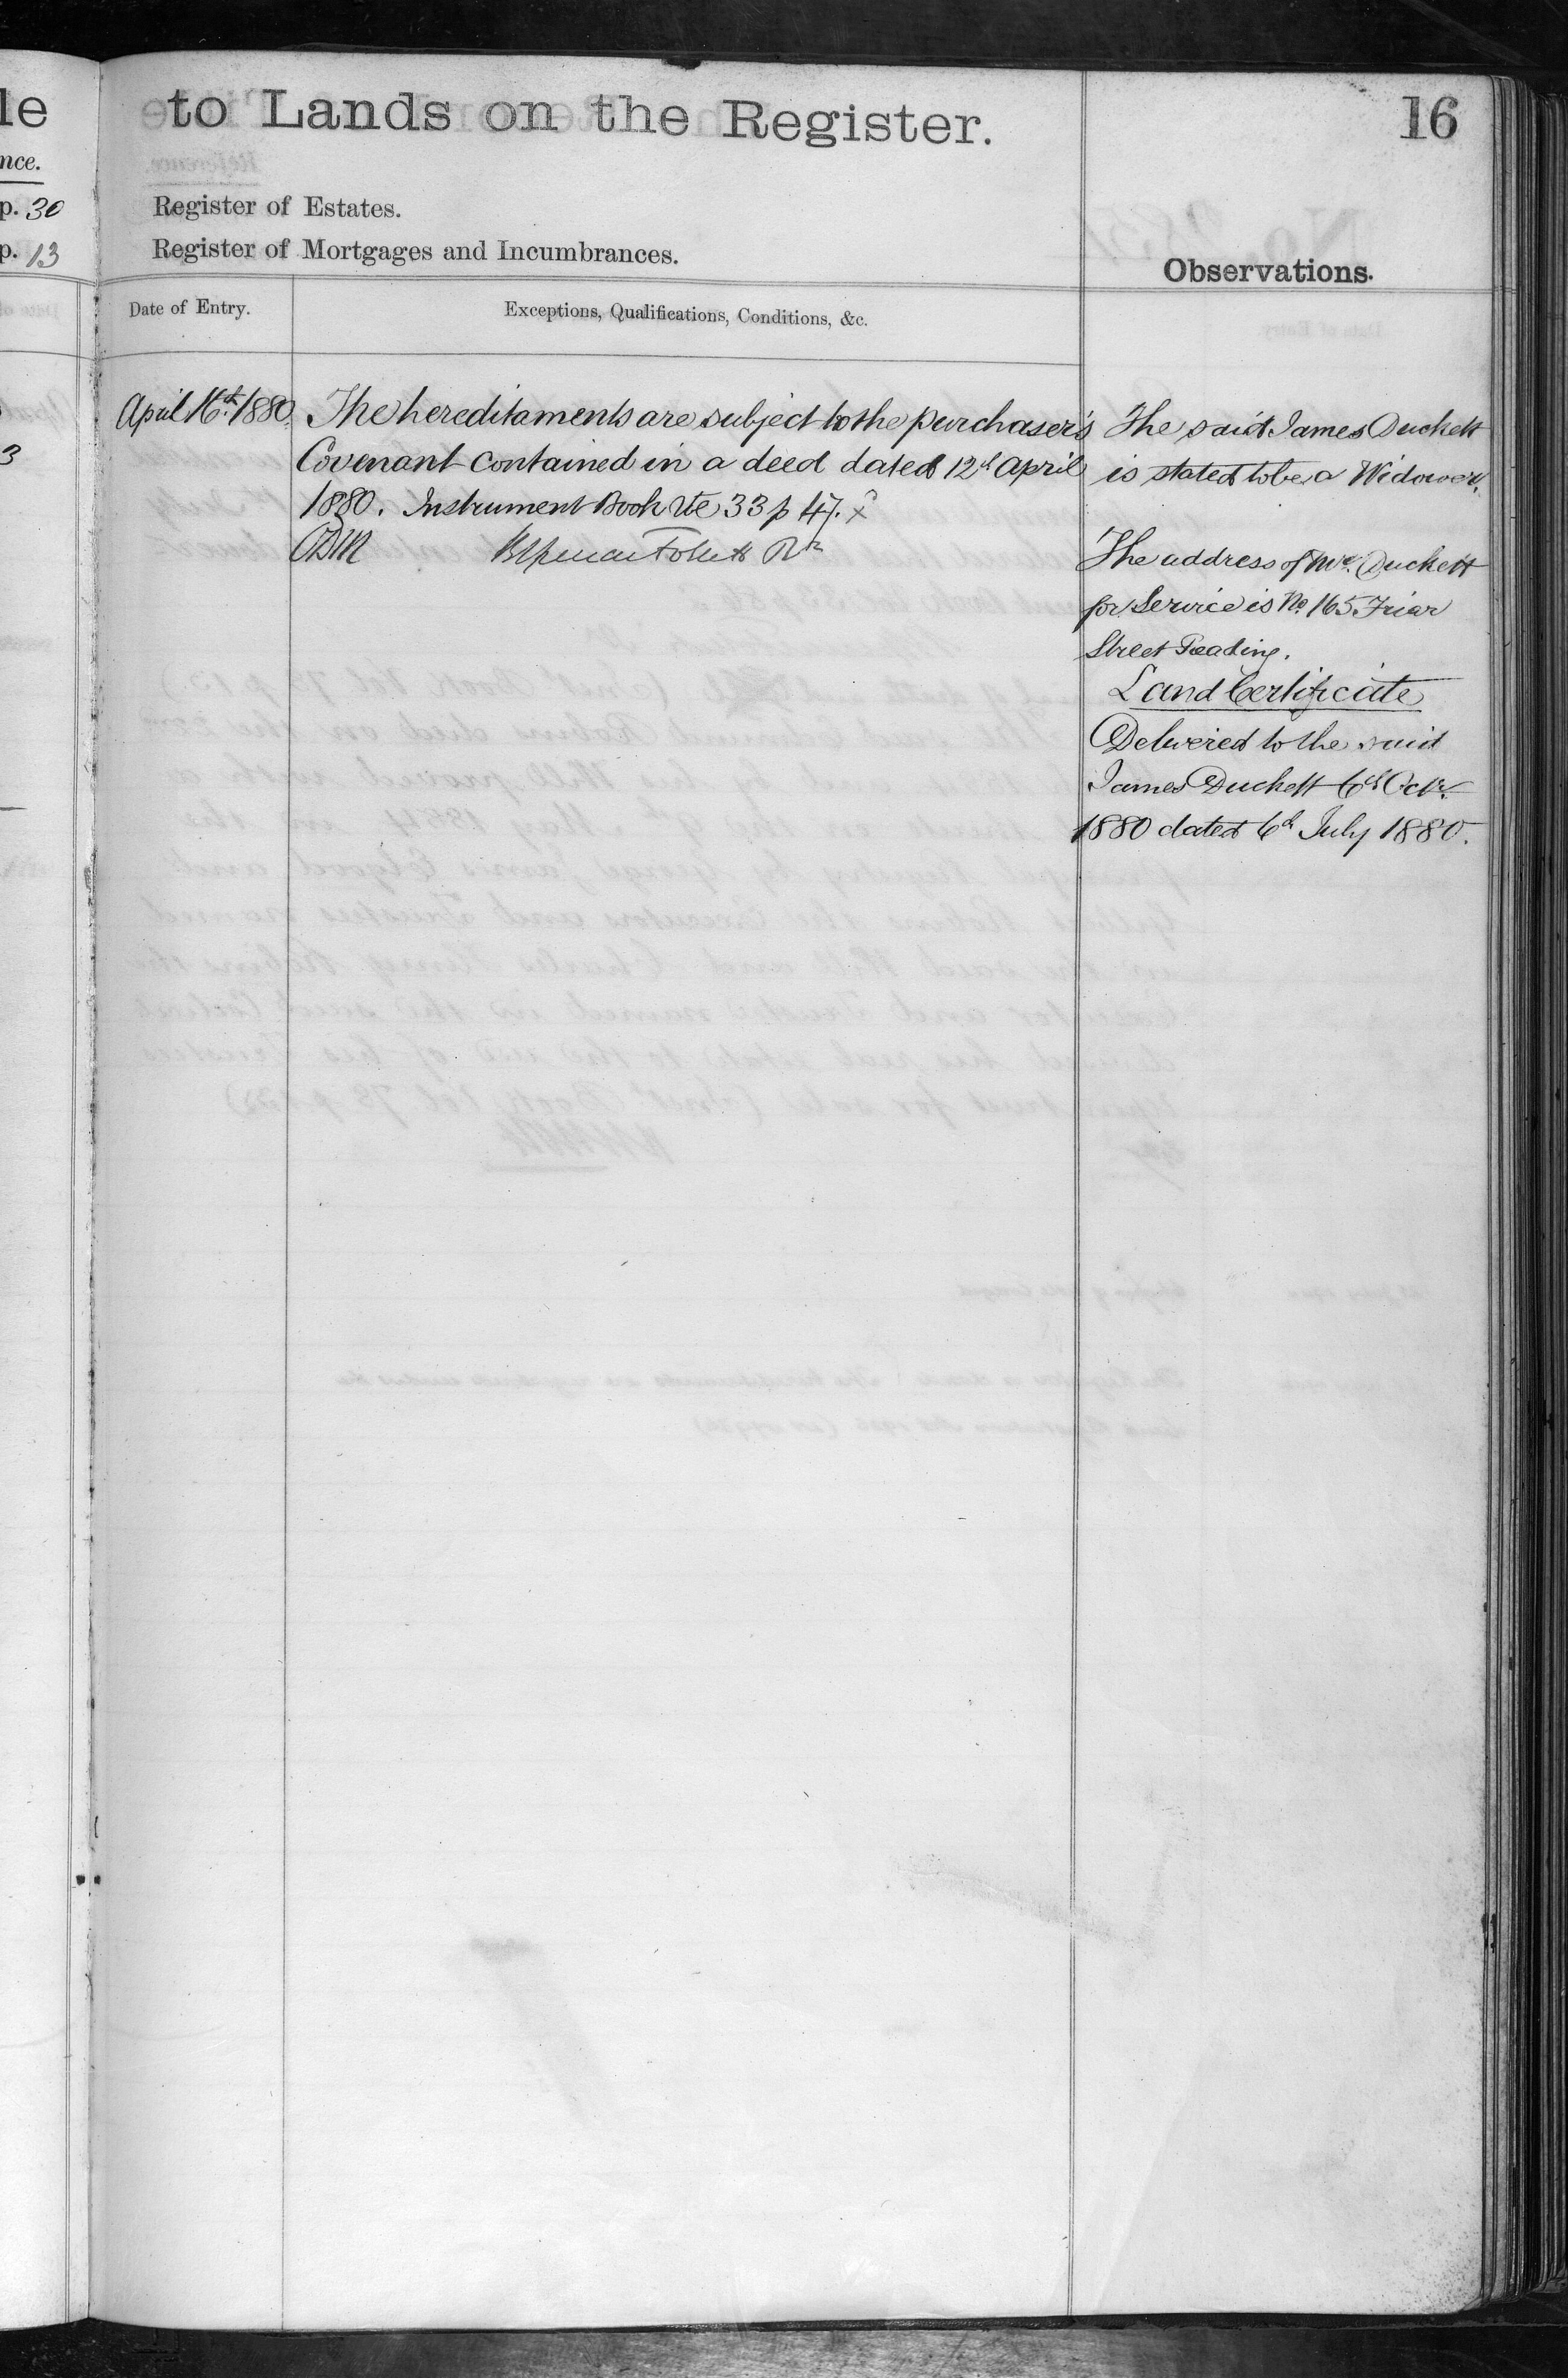 le
nce.
p. 30
p. 13
3
to Lands on the Register.
16
Register of Estates.
Register of Mortgages and Incumbrances.
Observations.
Date of Entry.
Exceptions, Qualifications, Conditions, &c.
April 16th. 1880.
The hereditaments are subject to the purchaser's
Covenant contained in a deed dated 12th April
1880. Instrument Book 33 p 47.
The said James Duckett
is stated to be a Widower.
The address of Mr. Duckett
for Service is No. 165 Friar
Street Reading.
Land Certificate
Delivered to the said
James Duckett 6th Octr.
1880 dated 6th July 1880.